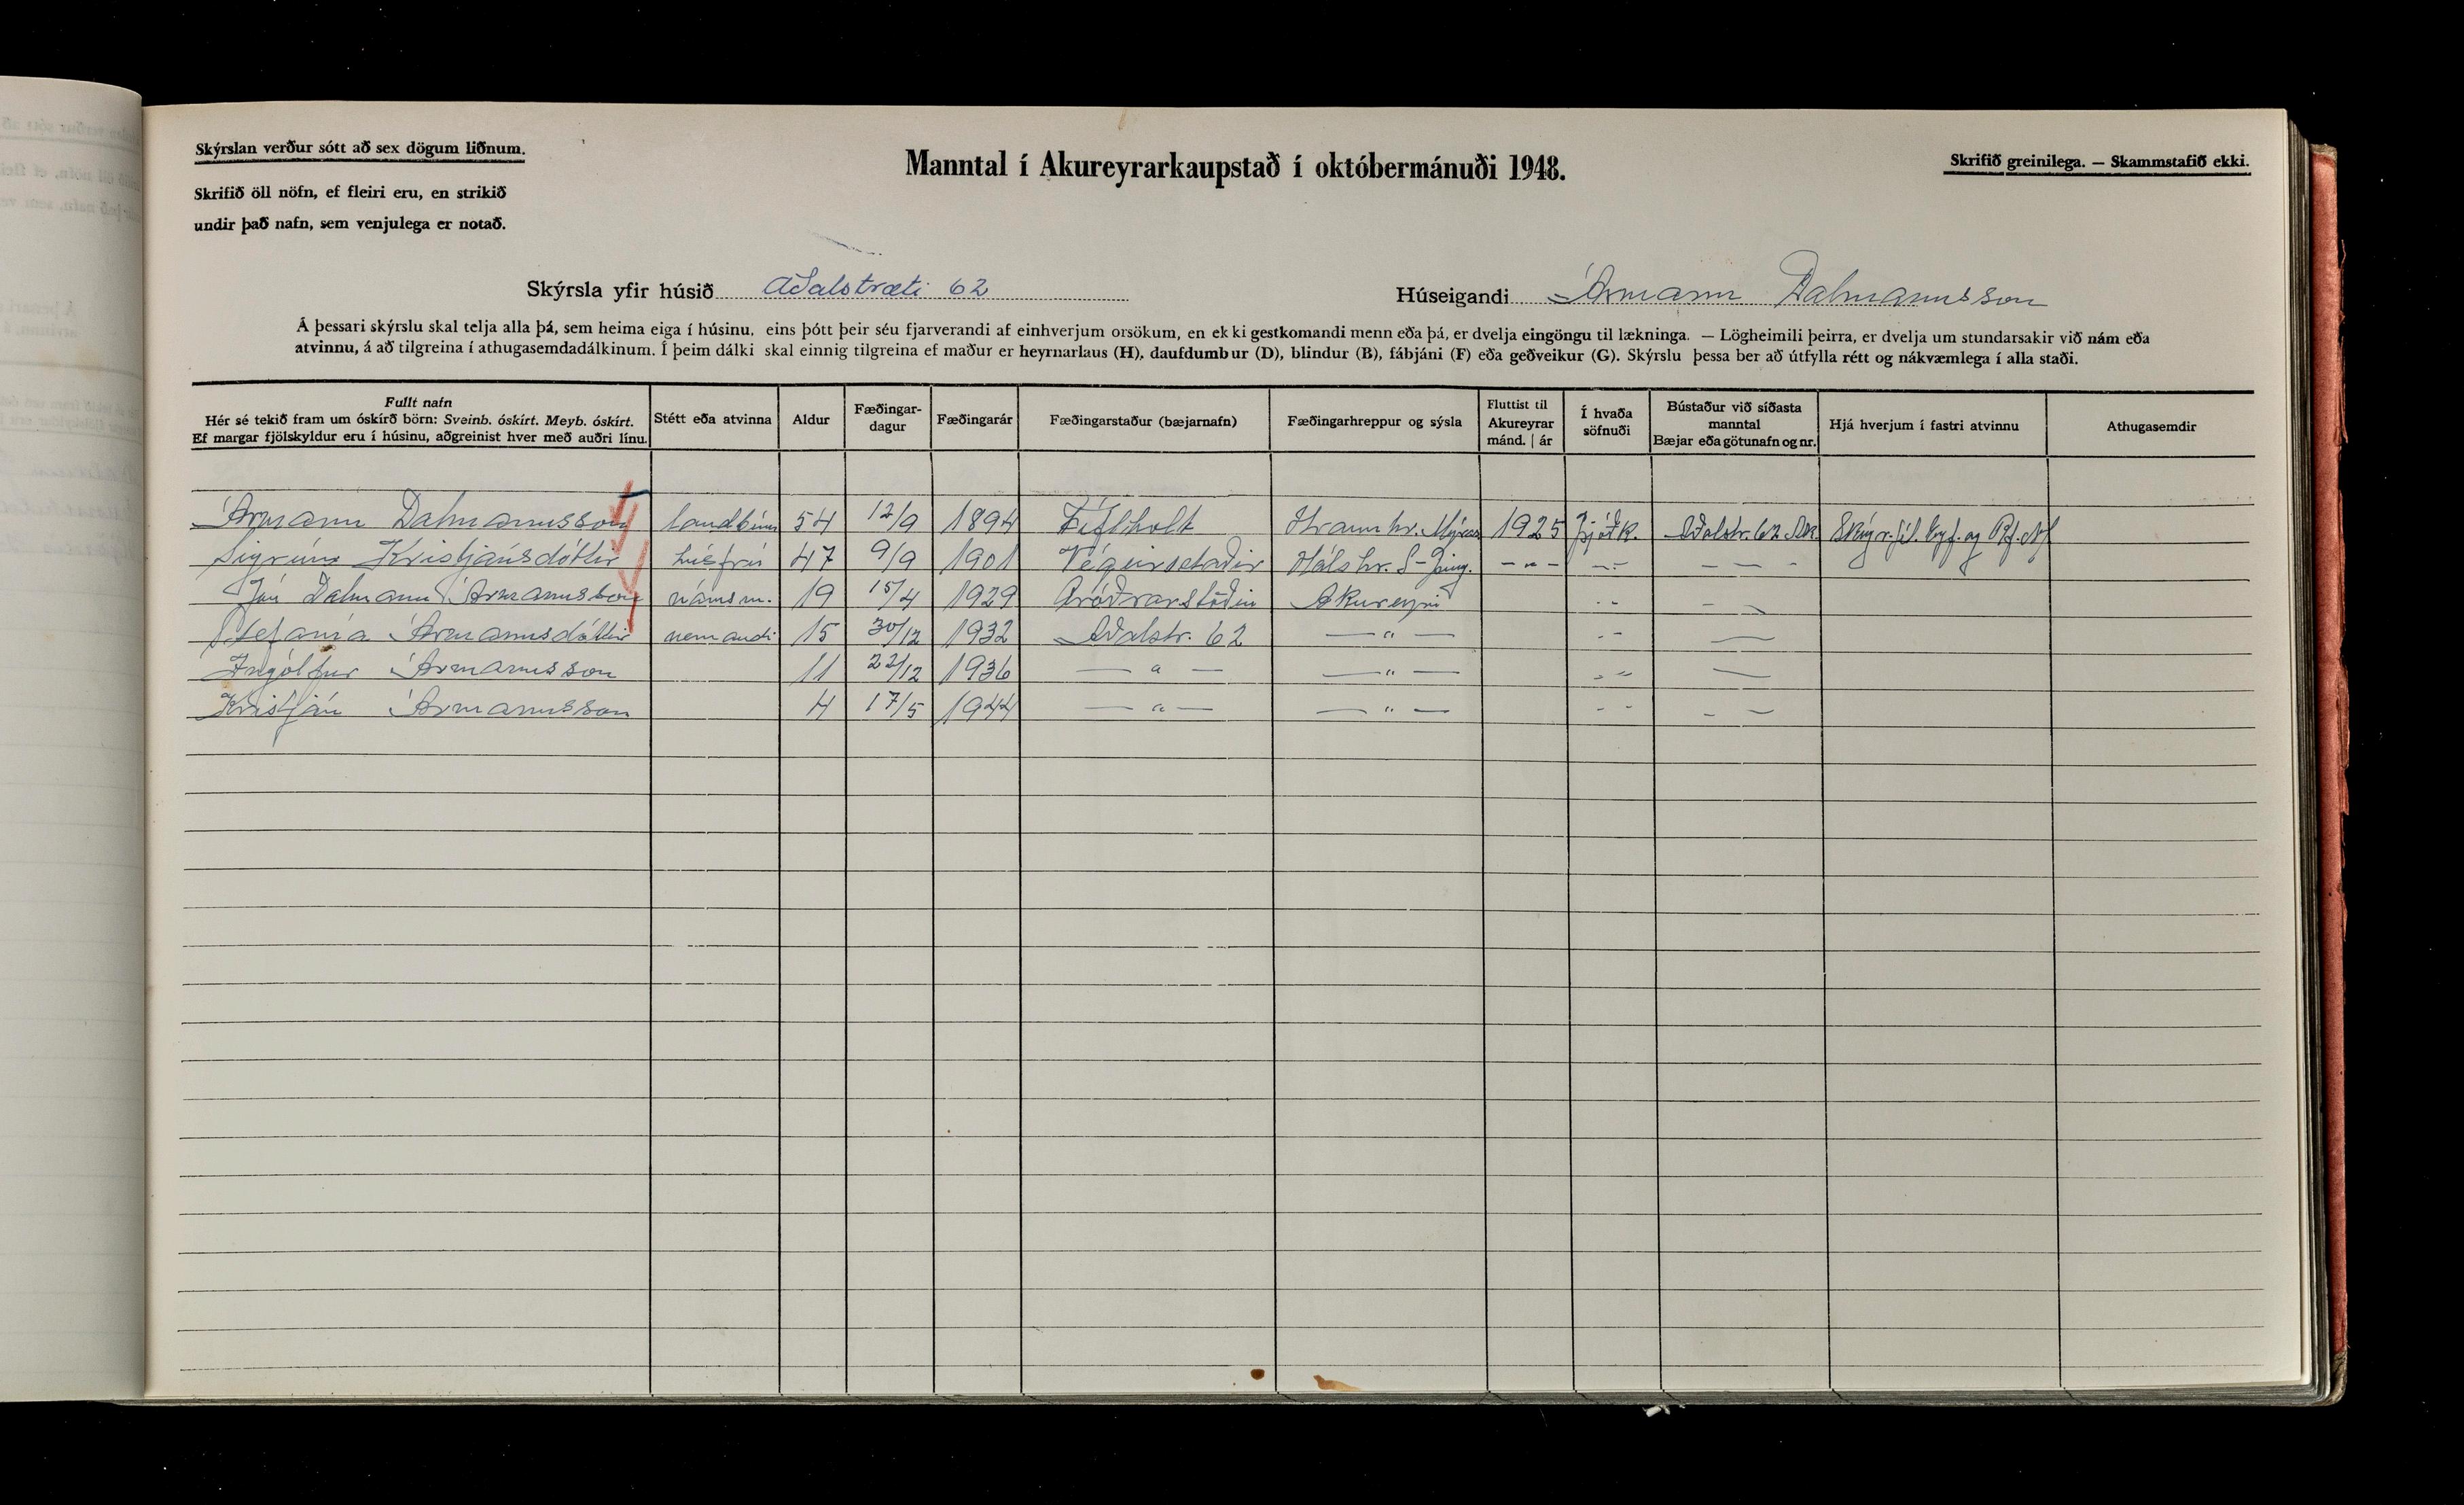 Skýrslan verður sótt að sex dögum liðnum.
Manntal í Akureyrarkaupstað í októbermánuði 1948.
Skrifið greinilega. — Skammstafið ekki.
Skrifið öll nöfn, ef fleiri eru, en strikið
undir það nafn, sem venjulega er notað.
Skýrsla yfir húsið Aðalstræti 62
Húseigandi Ármann Dalmannsson
Á þessari skýrslu skal telja alla þá, sem heima eiga í húsinu, eins þótt þeir séu fjarverandi af einhverjum orsökum, en ekki gestkomandi menn eða þá, er dvelja eingöngu til lækninga. — Lögheimili þeirra, er dvelja um stundarsakir við nám eða
atvinnu, á að tilgreina í athugasemdadálkinum. Í þeim dálki skal einnig tilgreina ef maður er heyrnarlaus (H), daufdumbur (D), blindur (B), fábjáni (F) eða geðveikur (G). Skýrslu þessa ber að útfylla rétt og nákvæmlega í alla staði.
Fullt nafn
Hér sé tekið fram um óskírð börn: Sveinb. óskírt. Meyb. óskírt.
Ef margar fjölskyldur eru í húsinu, aðgreinist hver með auðri línu.
Stétt eða atvinna
Aldur
Fæðingar-
dagur
Fæðingarár
Fæðingarstaður (bæjarnafn)
Fæðingarhreppur og sýsla
Fluttist til
Akureyrar
mánd. | ár
Í hvaða
söfnuði
Bústaður við síðasta
manntal
Bæjar eða götunafn og nr.
Hjá hverjum í fastri atvinnu
Athugasemdir
Ármann Dalmannsson 54 12/9 1894 Fíflholt Hraunhr. Mýras 1925 Þjóðk. Aðalstr. 62 Ak.
Sigrún Kristjánsdóttir húsfrú 47 9/9 1901 Végeirsstaðir Hálshr. S-Þing. - " - - " - — —
Jón Dalmann Ármannsson námsm. 19 15/4 1929 Gróðrarstöðin Akureyri - - — —
Stefanía Ármannsdóttir nemandi 15 30/12 1932 Aðalstr. 62 — " — - - —
Ingólfur Ármannsson 11 22/12 1936 — " — — " — - - —
Kristján Ármannsson 4 17/5 1944 — " — — " — - - — —